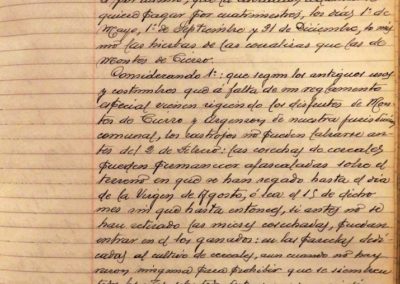 quiere pagar por cuatrimestres, los días 1º de
Mayo, 1º de Septiembre y 31 de Diciembre, lo mis
mo las hierbas de las corralizas que las de
Montes de Cierzo.
Considerando 1º: que segun los antiguos usos
y costumbres que á falta de un reglamento
especial vienen rigiendo los disfrutes de Mon
tes de Cierzo y Argenzon de nuestra jurisdicción
comunal, los rastrojos no pueden labrarse an
tes del 2 de Febrero: las cosechas de cereales
pueden permanecer afascaladas sobre el
terreno en que se han segado hasta el dia
de la Virgen de Agosto, ó sea el 15 de dicho
mes sin que hasta entonces, si antes no se
han retirado las mieses cosechadas, puedan
entrar en él los ganados: en las parcelas dedi
cadas al cultivo de cereales, aun cuando no hay
razon ninguna para prohibir que se siembren